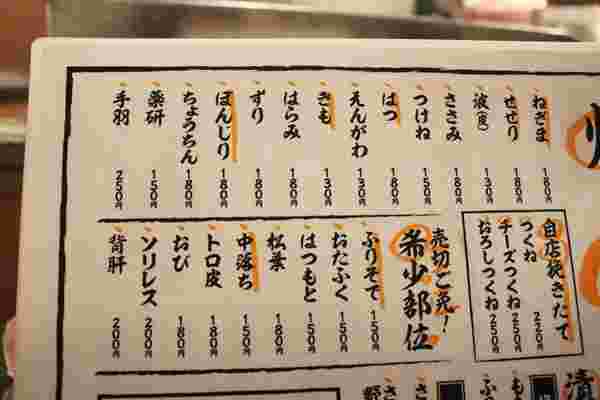 ねぎま 180円
せせり 180円
波(皮) 130円
ささみ 180円
つけね 150円
はつ 180円
えんがわ 130円
きも 130円
はらみ 180円
ずり 180円
ぼんじり 180円
ちょうちん 180円
薬研 150円
手羽 250円
自店焼きたて
つくね 220円
チーズつくね 250円
おろしつくね 250円
売切ご免!
希少部位
ふりそで 150円
おたふく 150円
はつもと 150円
松葉 180円
中落ち 150円
トロ皮 180円
おび 180円
ソリレス 200円
背肝 200円